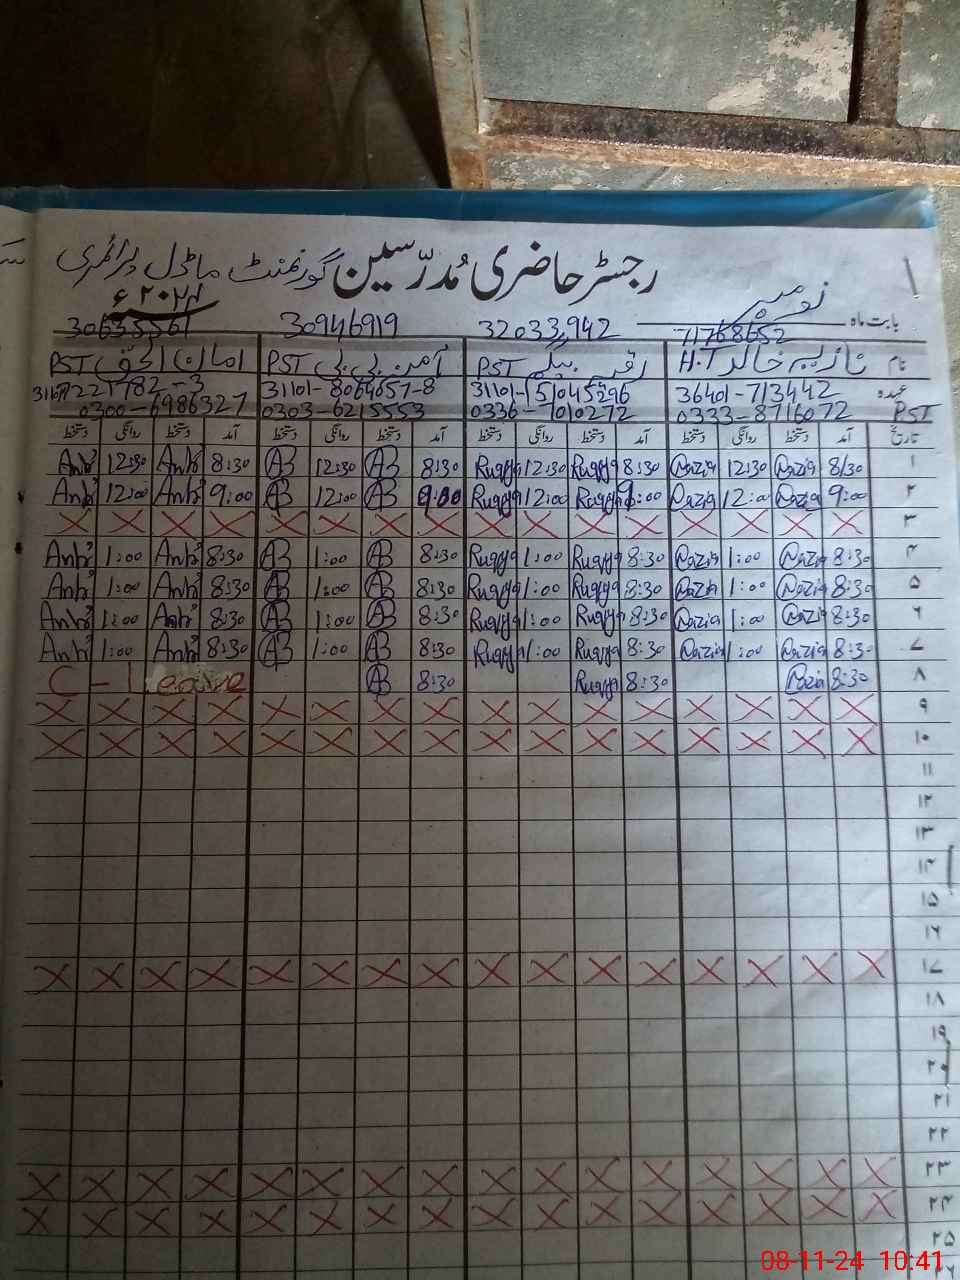 رجسٹر حاضری مُدرّسین گورنمنٹ ماڈل پرائمری
۱
بابت ماہ نومبر ۲۰۲۴ء
71768652 32033942 30946919 30635561
نام نازیہ خالد H.T رقیہ بی بی PST آمنہ بی بی PST امان الحق PST
عہدہ 36401-713442 31101-15045296 31101-8064657-8
PST 0333-8716072 0336-7010272 0303-6215553 0300-6986327
تاریخ آمد دستخط روانگی دستخط آمد دستخط روانگی دستخط آمد دستخط روانگی دستخط آمد دستخط روانگی دستخط
۱ 8/30 Nazia 12:30 Nazia 8:30 Ruqyya 12:30 Ruqyya 8:30 AB 12:30 AB 8:30 12:30
۲ 9:00 Nazia 12:00 Nazia 9:00 Ruqyya 12:00 Ruqyya 9:00 AB 12:00 AB 9:00 12:00
۳ X X X X X X X X X X X X X X X X
۴ 8:30 Nazia 1:00 Nazia 8:30 Ruqyya 1:00 Ruqyya 8:30 AB 1:00 AB 8:30 1:00
۵ 8:30 Nazia 1:00 Nazia 8:30 Ruqyya 1:00 Ruqyya 8:30 AB 1:00 AB 8:30 1:00
۶ 8:30 Nazia 1:00 Nazia 8:30 Ruqyya 1:00 Ruqyya 8:30 AB 1:00 AB 8:30 1:00
۷ 8:30 Nazia 1:00 Nazia 8:30 Ruqyya 1:00 Ruqyya 8:30 AB 1:00 AB 8:30 1:00
۸ 8:30 Nazia 8:30 Ruqyya 8:30 AB C-Leave
۹ X X X X X X X X X X X X X X X X
۱۰ X X X X X X X X X X X X X X X X
۱۱
۱۲
۱۳
۱۴
۱۵
۱۶
۱۷ X X X X X X X X X X X X X X X X
۱۸
۱۹
۲۰
۲۱
۲۲
۲۳ X X X X X X X X X X X X X X X X
۲۴ X X X X X X X X X X X X X X X X
۲۵
08-11-24 10:41